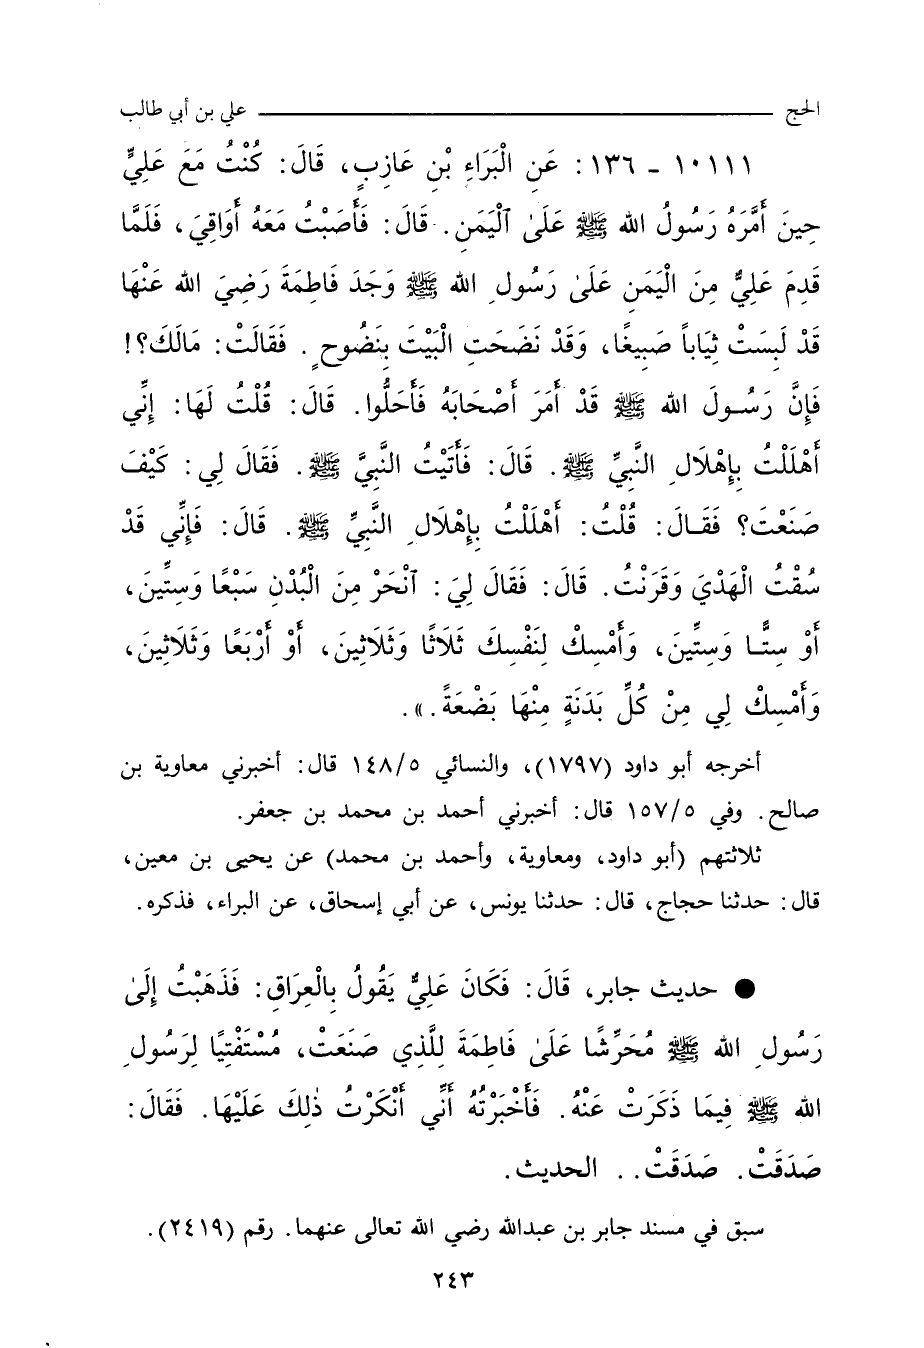 الحج ــــــــــــــــــــ علي بن أبي طالب
١٠١١١ - ١٣٦ : عَنِ الْبَرَاءِ بْنِ عَازِبٍ، قَالَ: كُنْتُ مَعَ عَلِيٍّ
حِينَ أَمَّرَهُ رَسُولُ الله ﷺ عَلَىٰ ٱلْيَمَنِ. قَالَ: فَأَصَبْتُ مَعَهُ أَوَاقِيَ، فَلَمَّا
قَدِمَ عَلِيٌّ مِنَ الْيَمَنِ عَلَىٰ رَسُولِ الله ﷺ وَجَدَ فَاطِمَةَ رَضِيَ الله عَنْهَا
قَدْ لَبِسَتْ ثِيَاباً صَبِيغًا، وَقَدْ نَضَحَتِ الْبَيْتَ بِنَضُوحٍ. فَقَالَتْ: مَالَكَ؟!
فَإِنَّ رَسُولَ الله ﷺ قَدْ أَمَرَ أَصْحَابَهُ فَأَحَلُّوا. قَالَ: قُلْتُ لَهَا: إِنِّي
أَهْلَلْتُ بِإِهْلَالِ النَّبِيِّ ﷺ. قَالَ: فَأَتَيْتُ النَّبِيَّ ﷺ. فَقَالَ لِي: كَيْفَ
صَنَعْتَ؟ فَقَالَ: قُلْتُ: أَهْلَلْتُ بِإِهْلَالِ النَّبِيِّ ﷺ. قَالَ: فَإِنِّي قَدْ
سُقْتُ الْهَدْيَ وَقَرَنْتُ. قَالَ: فَقَالَ لِيَ: ٱنْحَرْ مِنَ الْبُدْنِ سَبْعًا وَسِتِّينَ،
أَوْ سِتًّا وَسِتِّينَ، وَأَمْسِكْ لِنَفْسِكَ ثَلَاثًا وَثَلَاثِينَ، أَوْ أَرْبَعًا وَثَلَاثِينَ،
وَأَمْسِكْ لِي مِنْ كُلِّ بَدَنَةٍ مِنْهَا بَضْعَةً.».
أخرجه أبو داود (١٧٩٧)، والنسائي ١٤٨/٥ قال: أخبرني معاوية بن
صالح. وفي ١٥٧/٥ قال: أخبرني أحمد بن محمد بن جعفر.
ثلاثتهم (أبو داود، ومعاوية، وأحمد بن محمد) عن يحيى بن معين،
قال: حدثنا حجاج، قال: حدثنا يونس، عن أبي إسحاق، عن البراء، فذكره.
● حديث جابر، قَالَ: فَكَانَ عَلِيٌّ يَقُولُ بِالْعِرَاقِ: فَذَهَبْتُ إِلَىٰ
رَسُولِ الله ﷺ مُحَرِّشًا عَلَىٰ فَاطِمَةَ لِلَّذِي صَنَعَتْ، مُسْتَفْتِيًا لِرَسُولِ
الله ﷺ فِيمَا ذَكَرَتْ عَنْهُ. فَأَخْبَرْتُهُ أَنِّي أَنْكَرْتُ ذٰلِكَ عَلَيْهَا. فَقَالَ:
صَدَقَتْ. صَدَقَتْ.. الحديث.
سبق في مسند جابر بن عبدالله رضي الله تعالى عنهما. رقم (٢٤١٩).
٢٤٣